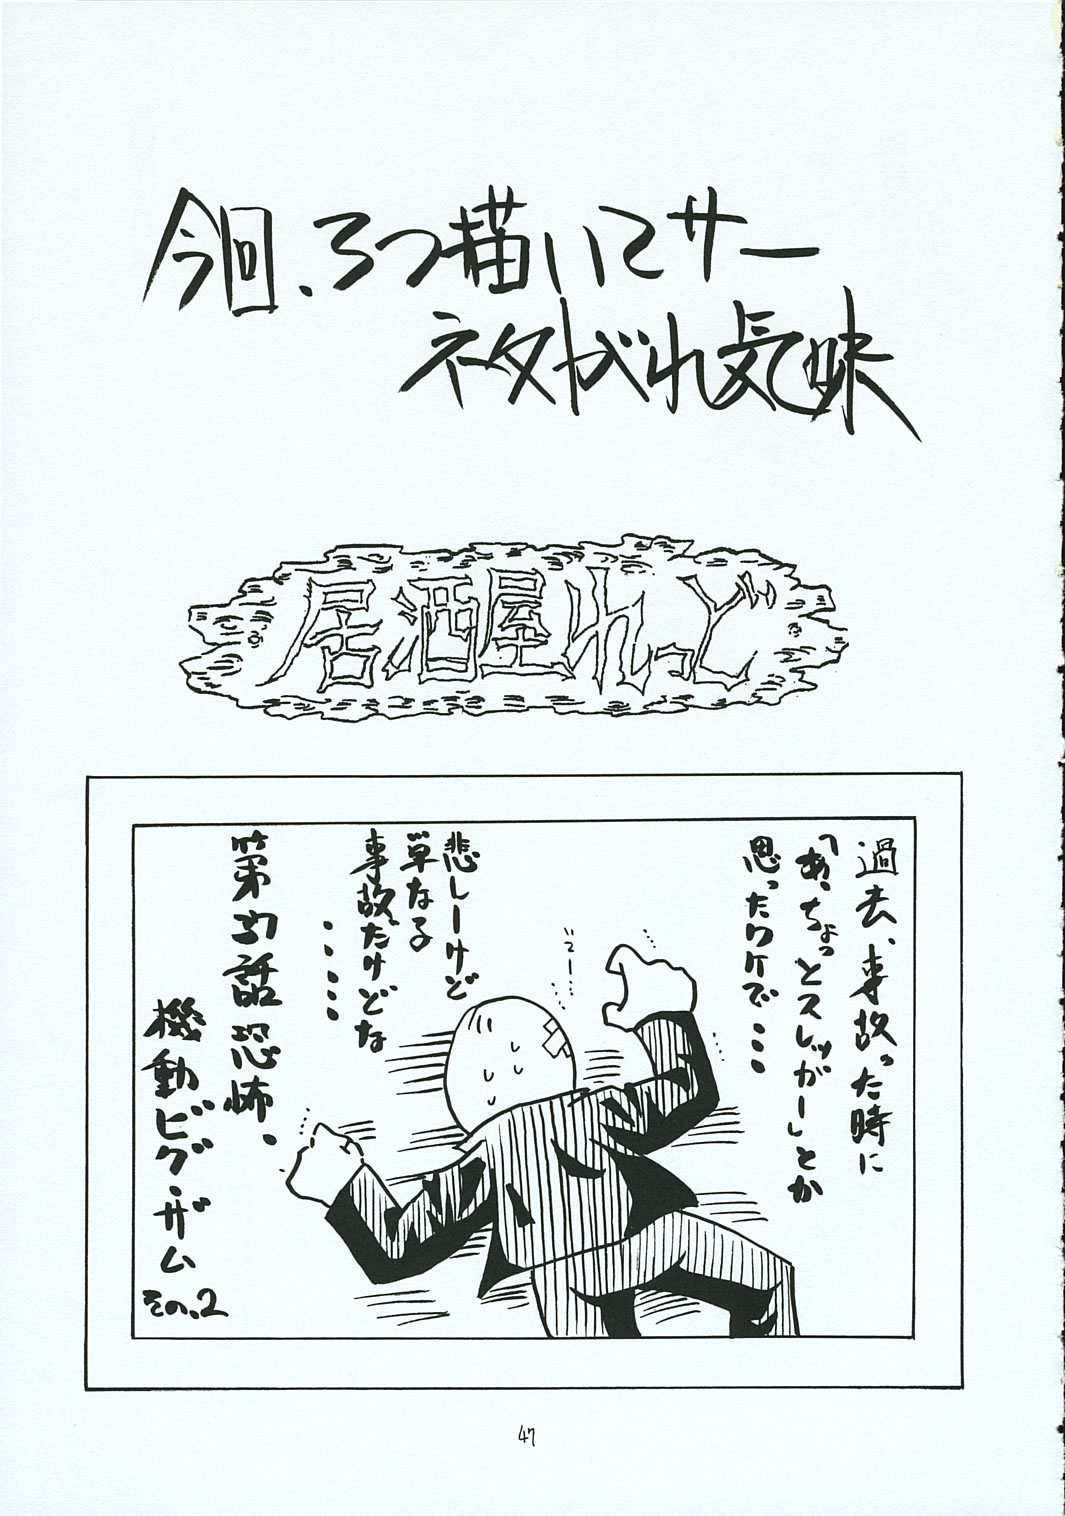 今回、3つ描いてサー
ネタがれ気味
居酒屋れっど
過去、事故った時に
「あ、ちょっとスレッガー」とか
思ったワケで・・・
悲しーけど
単なる
事故だけどな
・・・・
第37話 恐怖、
機動ビグ・ザム
その.2
47